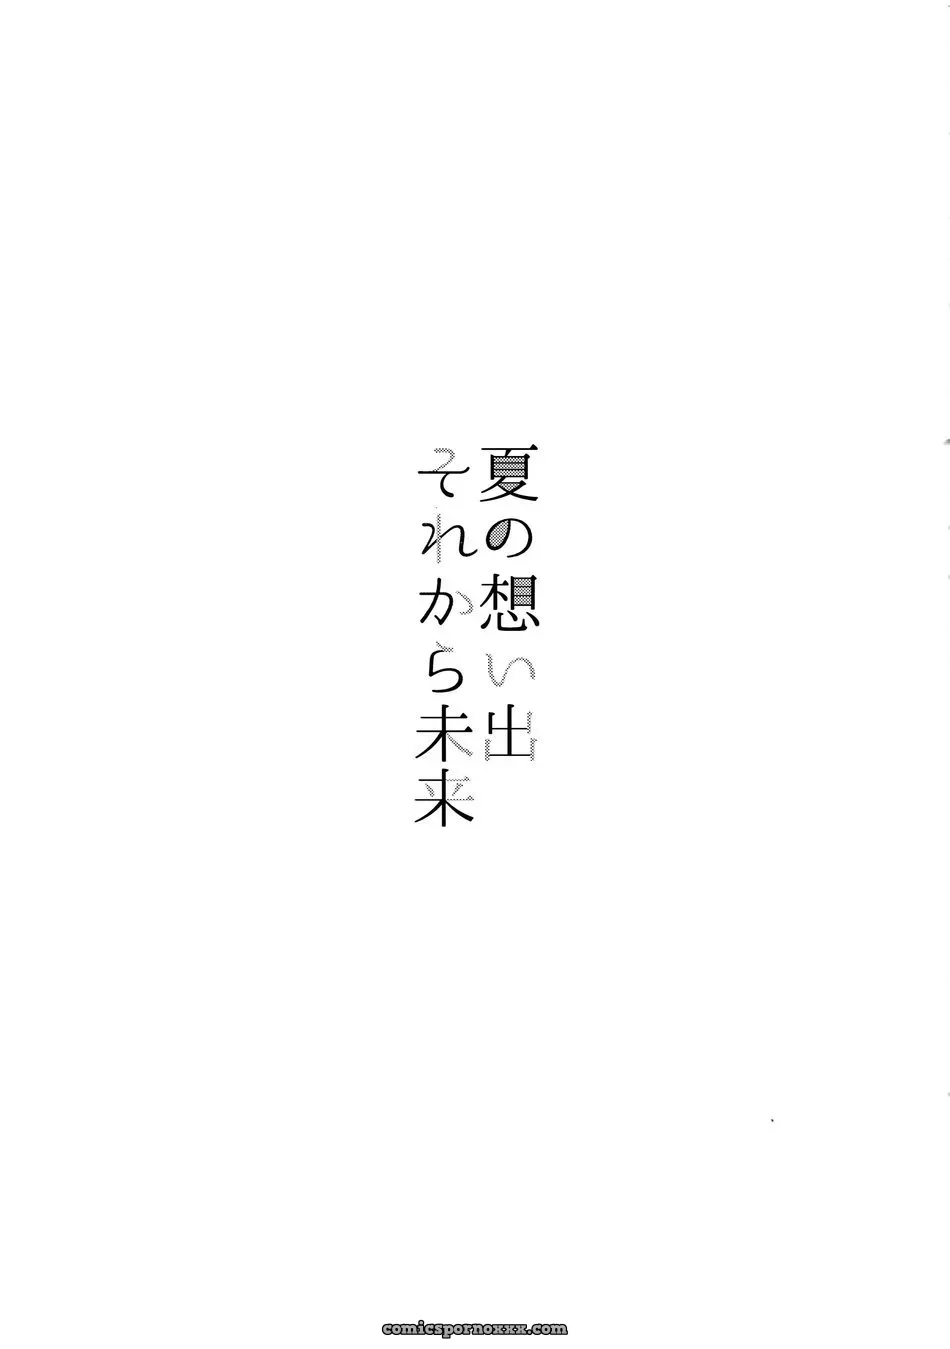 夏の想い出
それから未来
comicspornoxxx.com